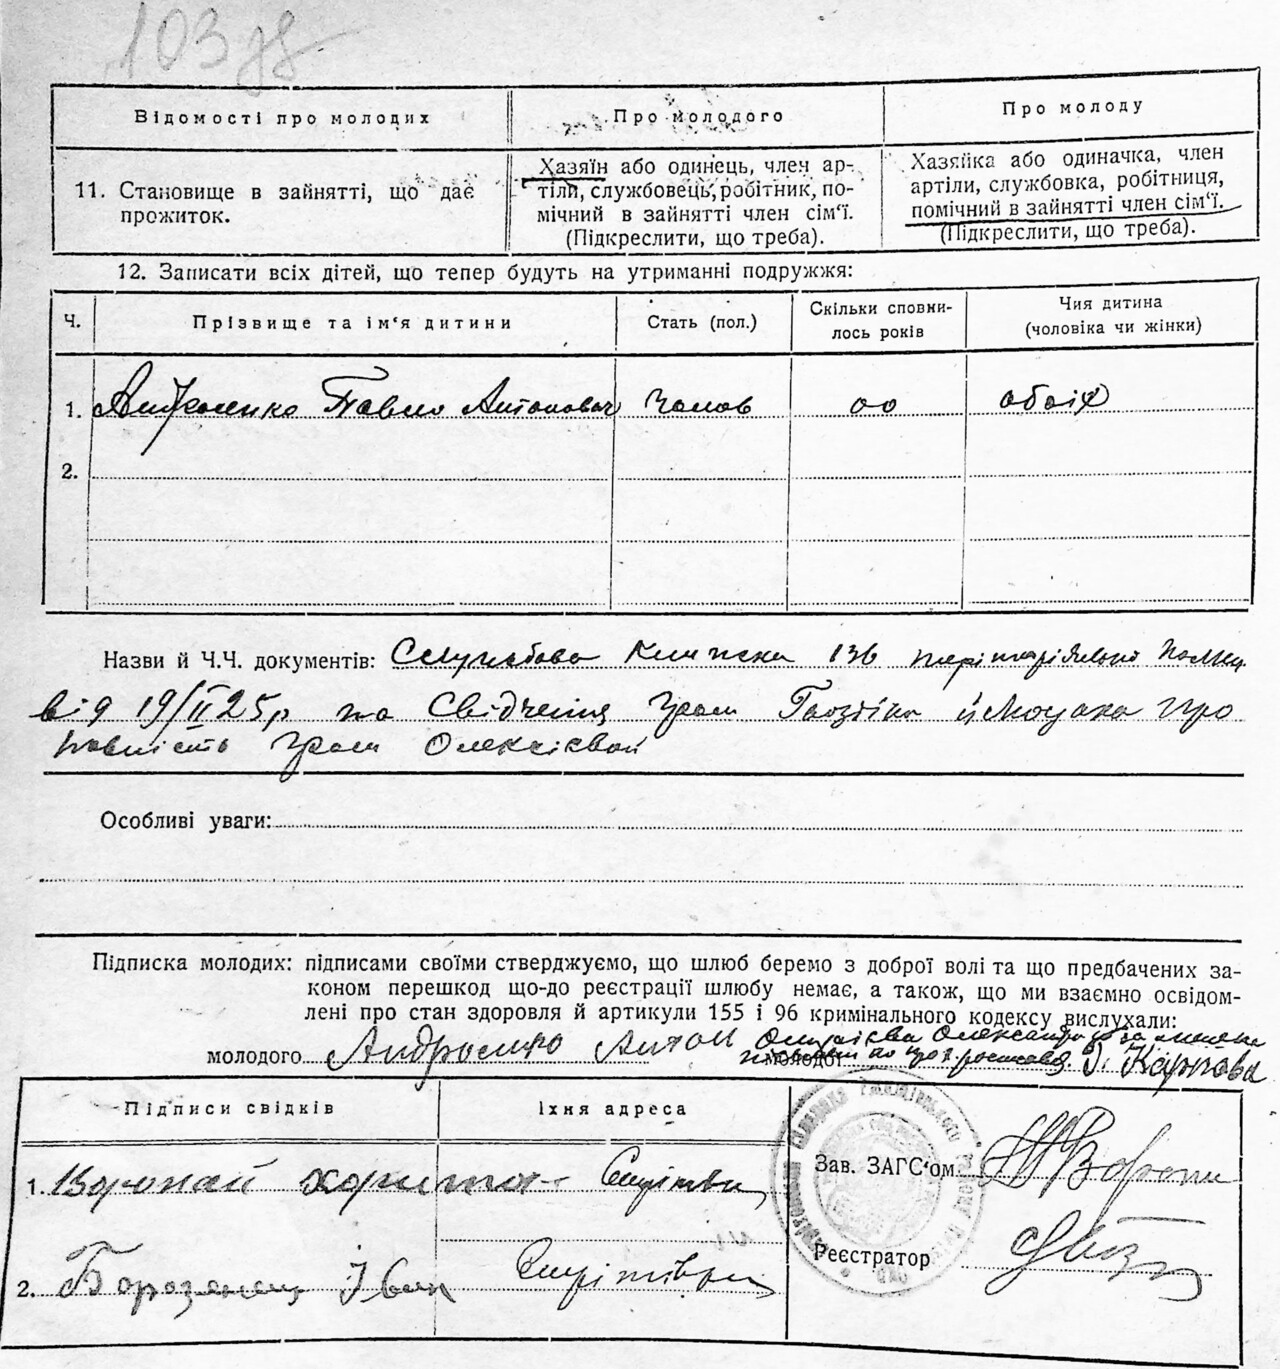 103 зв
Відомості про молодих
Про молодого
Про молоду
11. Становище в зайнятті, що дає
прожиток.
Хазяїн або одинець, член ар-
тіли, службовець, робітник, по-
мічний в зайнятті член сім'ї.
(Підкреслити, що треба).
Хазяйка або одиначка, член
артіли, службовка, робітниця,
помічний в зайнятті член сім'ї.
(Підкреслити, що треба).
12. Записати всіх дітей, що тепер будуть на утриманні подружжя:
Ч.
Прізвище та ім'я дитини
Стать (пол.)
Скільки сповни-
лось років
Чия дитина
(чоловіка чи жінки)
1. Андросенко Павло Антонович чолов 00 обоїх
2.
Назви й Ч.Ч. документів: Службова книжка 136 теріторіяльно полка
від 19/II 25р та Свідчення Гром Гвоздіка й про
повність Гром Олексієвой
Особливі уваги:
Підписка молодих: підписами своїми стверджуємо, що шлюб беремо з доброї волі та що предбачених за-
коном перешкод що-до реєстрації шлюбу немає, а також, що ми взаємно освідом-
лені про стан здоровля й артикули 155 і 96 кримінального кодексу вислухали:
молодого Андросенко Антон
молодої Олександра за Карпова
Підписи свідків
Їхня адреса
1. Воропай Харитон
2. Борозенец Іван
Зав. ЗАГС'ом
Реєстратор